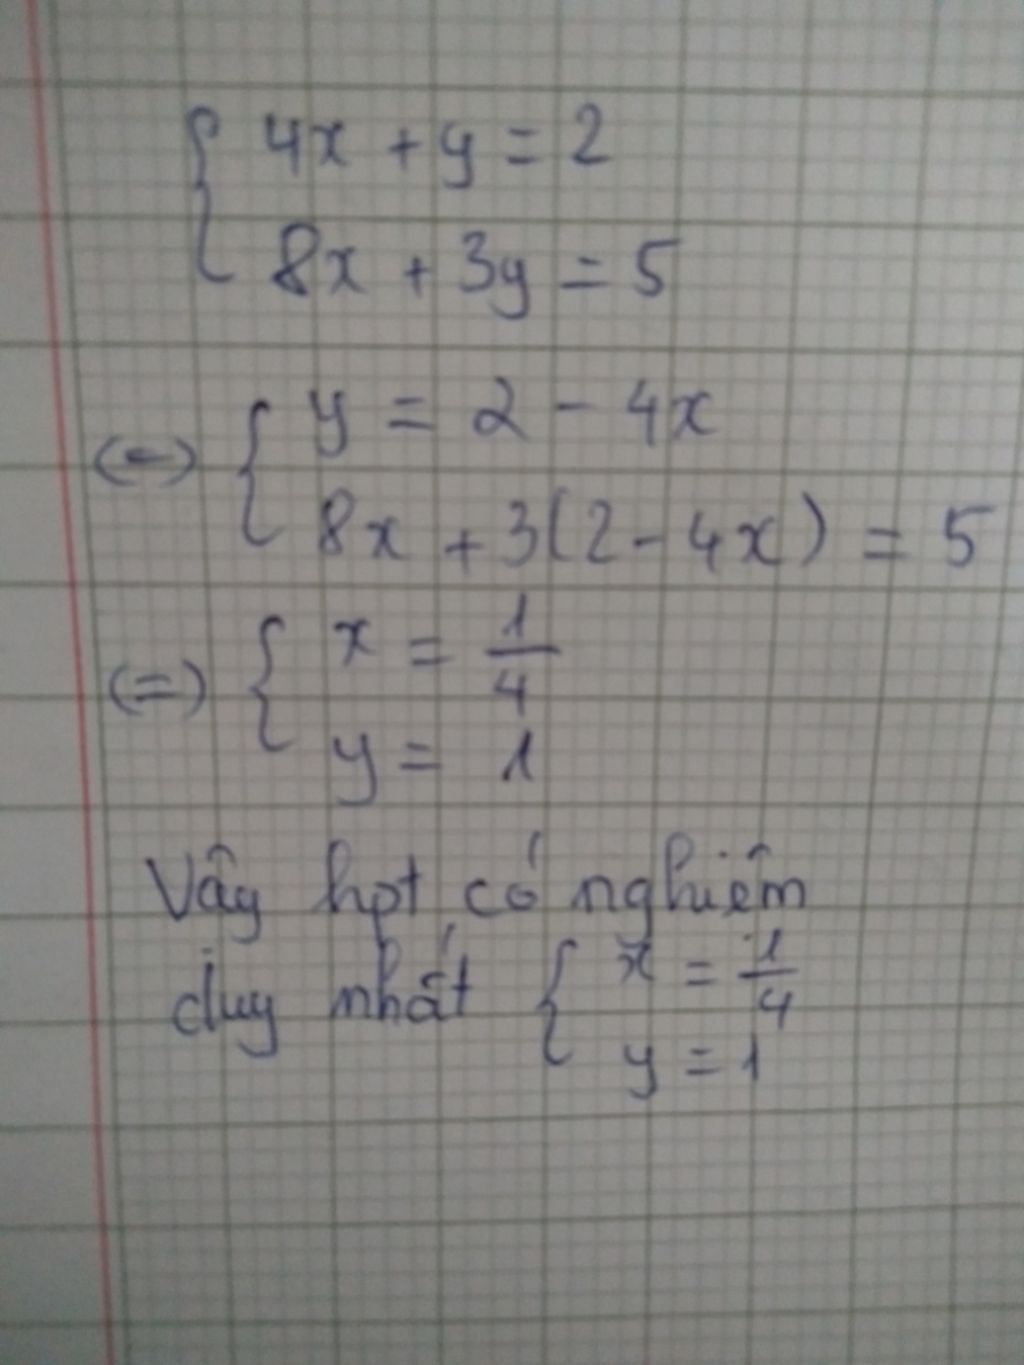 { 4x + y = 2
8x + 3y = 5
(=) { y = 2 - 4x
8x + 3(2 - 4x) = 5
(=) { x = 1/4
y = 1
Vậy hpt có nghiệm
duy nhất { x = 1/4
y = 1